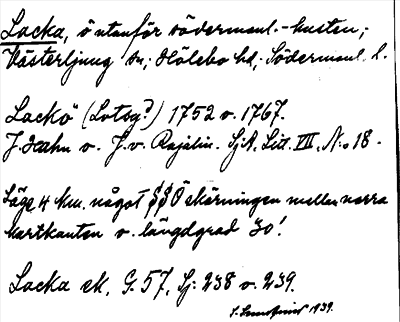 Lacka, ö utanför södermanl.-kusten;
Västerljung sn; Hölebo hd; Södermanl. l.
Lackö (Lotsg?) 1752 o. 1767.
J. Hahn o. J. v. Rajalin. Sj.A. Litt. VIII, N:o 18.
Läge 4 km. något SSÖ skärningen mellan norra
kartkanten o. längdgrad 30'.
Lacka ek. G. 57, Sj: 238 o. 239.
1939.